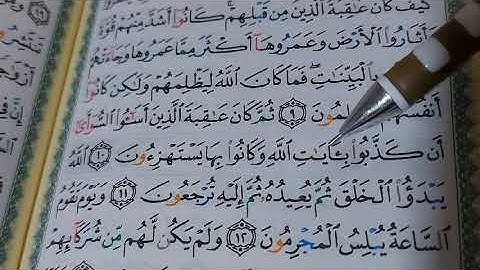 كَيْفَ كَانَ عَـٰقِبَةُ ٱلَّذِينَ مِن قَبْلِهِمْ ۚ كَانُوٓا۟ أَشَدَّ مِنْهُمْ
وَأَثَارُوا۟ ٱلْأَرْضَ وَعَمَرُوهَآ أَكْثَرَ مِمَّا عَمَرُوهَا
بِٱلْبَيِّنَـٰتِ ۖ فَمَا كَانَ ٱللَّهُ لِيَظْلِمَهُمْ وَلَـٰكِن كَانُوٓا۟
أَنفُسَهُمْ ٩ ثُمَّ كَانَ عَـٰقِبَةَ ٱلَّذِينَ أَسَـٰٓـُٔوا۟ ٱلسُّوٓأَىٰٓ
أَن كَذَّبُوا۟ بِـَٔايَـٰتِ ٱللَّهِ وَكَانُوا۟ بِهَا يَسْتَهْزِءُونَ ١٠ ٱللَّهُ
يَبْدَؤُا۟ ٱلْخَلْقَ ثُمَّ يُعِيدُهُۥ ثُمَّ إِلَيْهِ تُرْجَعُونَ ١١ وَيَوْمَ تَقُومُ
ٱلسَّاعَةُ يُبْلِسُ ٱلْمُجْرِمُونَ ١٢ وَلَمْ يَكُن لَّهُم مِّن شُرَكَآئِهِمْ